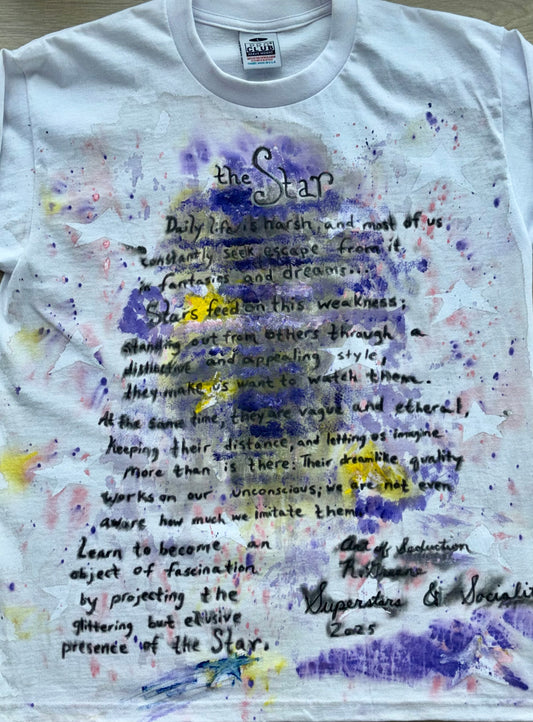 CLUB
the Star
Daily life is harsh, and most of us
constantly seek escape from it
in fantasies and dreams...
Stars feed on this weakness;
standing out from others through a
distinctive and appealing style,
they make us want to watch them.
At the same time, they are vague and etheral,
Keeping their distance, and letting us imagine
more than is there; Their dreamlike quality
works on our unconscious; we are not even
aware how much we imitate them.
Learn to become an
object of fascination
by projecting the
glittering but elusive
presence of the Star.
Art of Seduction
R. Greene
Superstars & Socialit
2025